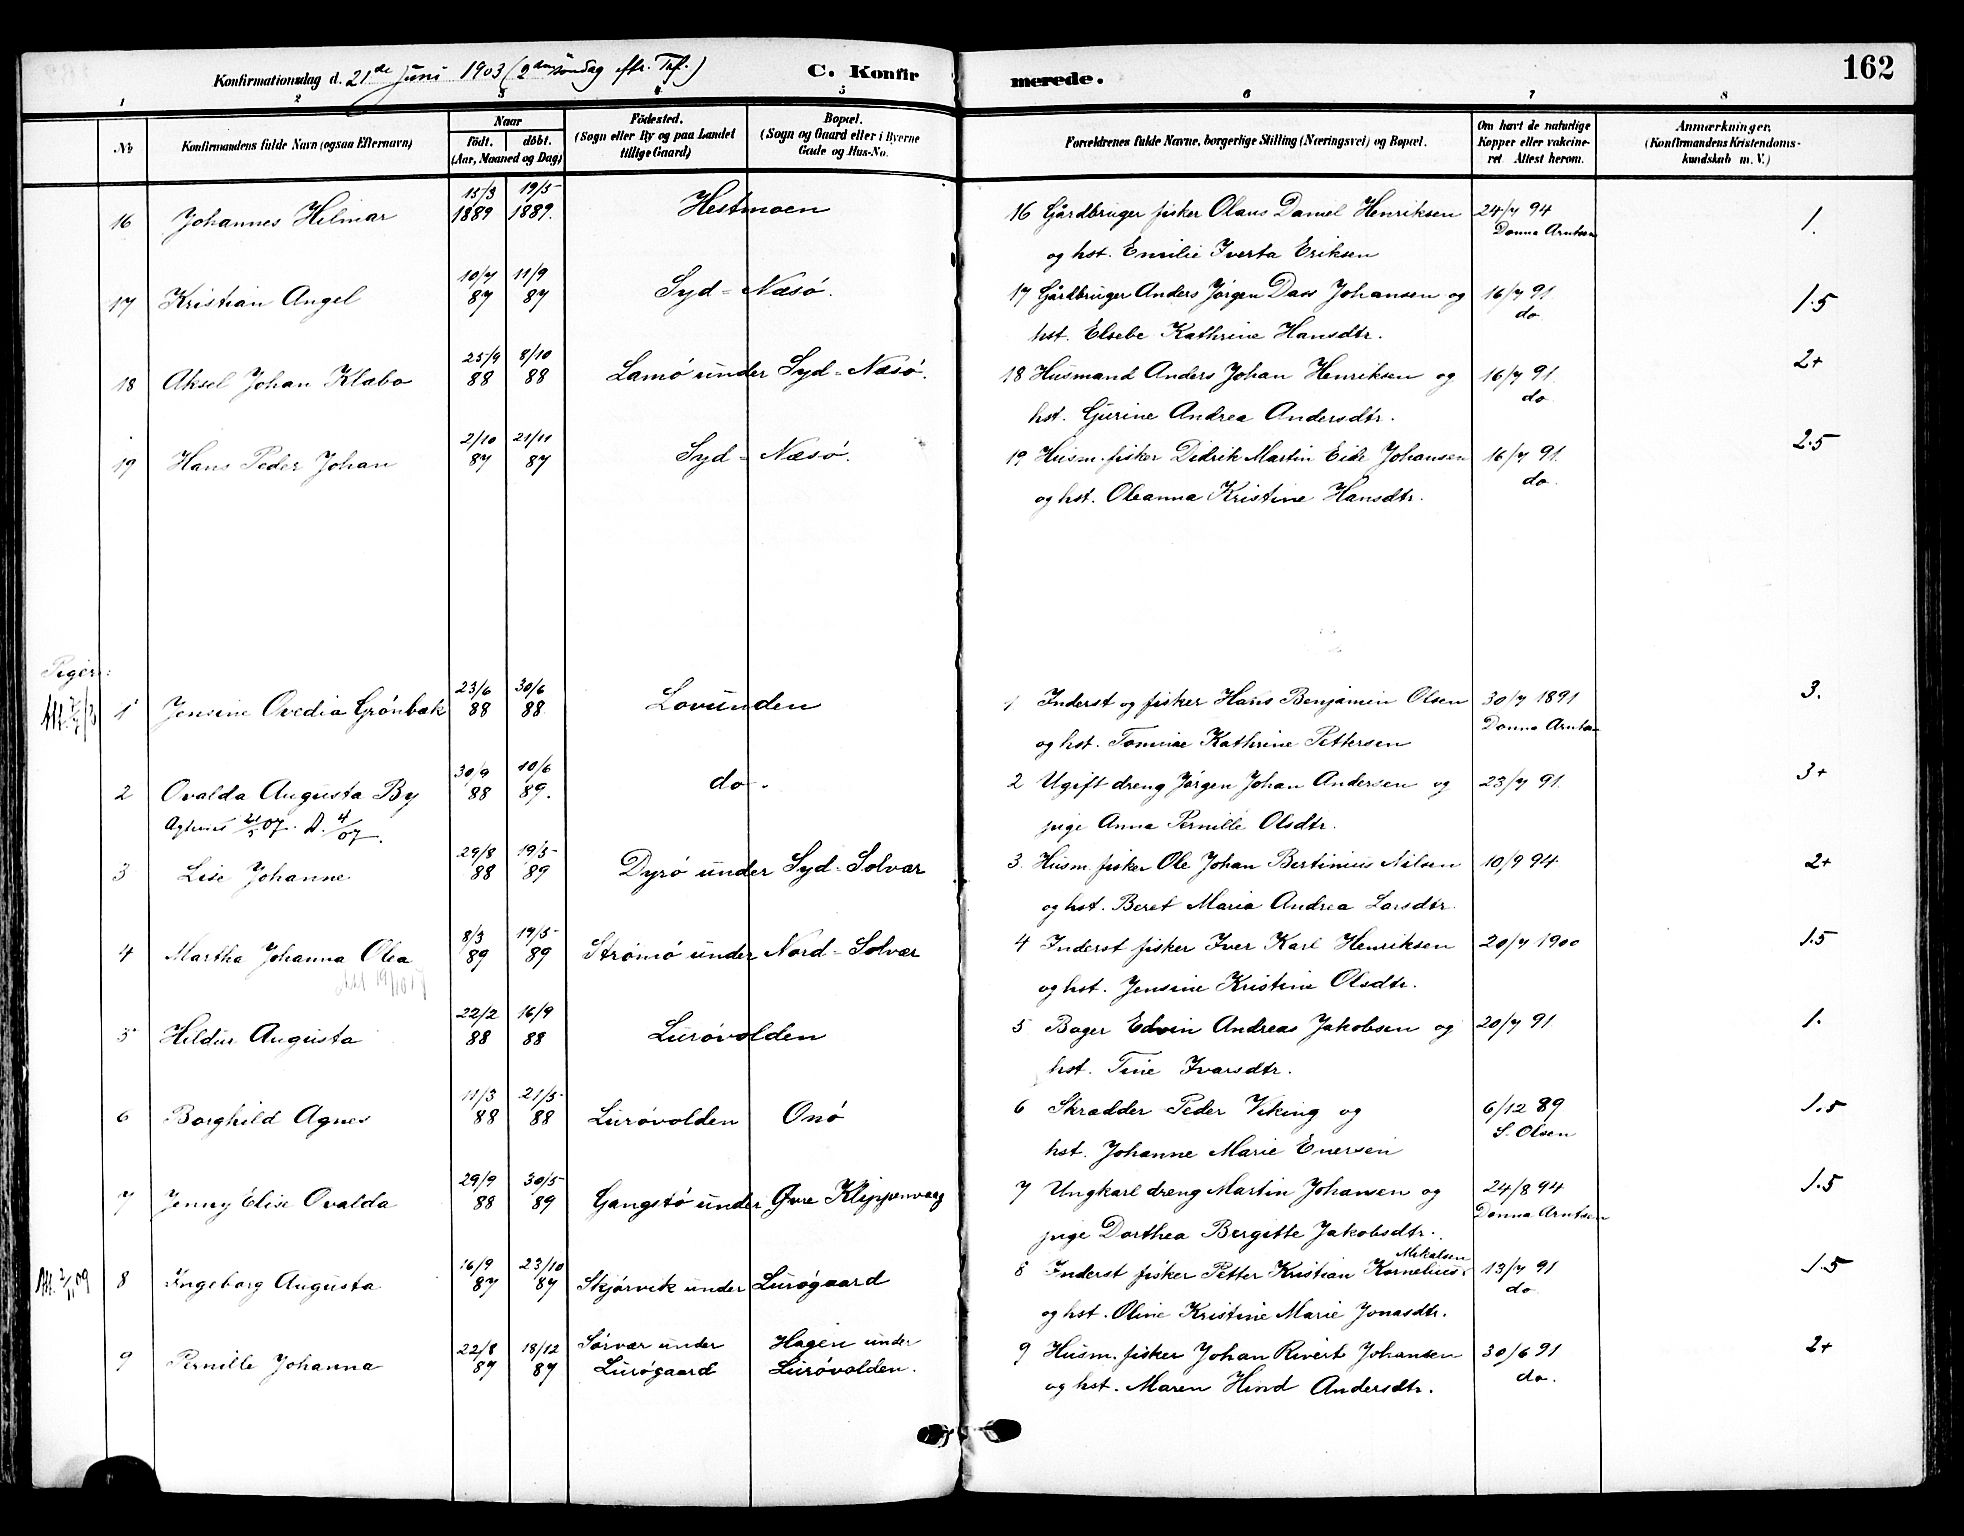 162
Konfirmationsdag d. 21de Juni 1903 (2den söndag eftr. Tref.) C. Konfirmerede.
1 2 3 4 5 6 7 8
No Konfirmandens fulde Navn (ogsaa Efternavn) Naar födt. döbt. (Aar, Maaned og Dag) Födested. (Sogn eller By og paa Landet tillige Gaard) Bopæl. (Sogn og Gaard eller i Byerne Gade og Hus-No. Forældrenes fulde Navne, borgerlige Stilling (Næringsvei) og Bopæl. Om havt de naturlige Kopper eller vakcineret Attest herom. Anmærkninger. (Konfirmandens Kristendomskundskab m. V.)
16 Johannes Hilmar 15/3 1889 19/5 1889. Hestmoen 16 Gårdbruger fisker Olaus Daniel Henriksen 24/7 94 Donna Arntsen 1.
og hst. Emilie Iverta Eriksen
17 Kristian Angel 10/7 87 11/9 87 Syd-Næsö. 17 Gårdbruger Anders Jörgen Dass Johansen og 16/7 91. do 1.5
hst. Elsebe Kathrine Hansdtr.
18 Aksel Johan Klæbo 25/9 88 8/10 88 Lamö under Syd-Næsö. 18 Husmand Anders Johan Henriksen og 16/7 91. do 2+
hst. Gurine Andrea Andersdtr.
19 Hans Peder Johan 2/10 87 21/11 87 Syd-Næsö. 19 Husm. fisker Didrik Martin Eide Johansen 16/7 91. do. 2.5
og hst. Oleanna Kristine Hansdtr.
Piger:
1 Jensine Ovedia Grönbæk 23/6 88 30/6 88 Lovunden 1 Inderst og fisker Hans Benjamin Olsen 30/7 1891 Donna Arntsen 3.
og hst. Tomine Kathrine Pettersen
2 Ovalda Augusta By 30/9 88 10/6 89. do. 2 Ugift dreng Jörgen Johan Andersen og 23/7 91. 3+
pige Anna Pernille Olsdtr.
3 Lise Johanne 29/8 88 19/5 89 Dyrö under Syd-Solvær 3 Husm. fisker Ole Johan Bertinius Nilsen 10/9 94 2+
og hst. Beret Maria Andrea Larsdtr
4 Martha Johanna Olea 8/3 89 19/5 89 Strömö under Nord-Solvær 4 Inderst fisker Iver Karl Henriksen 20/7 1900 1.5
og hst. Jensine Kristine Olsdtr.
5 Hildur Augusta 22/2 88 16/9 88 Lurövolden 5 Bager Edvin Andreas Jakobsen og 20/7 91 1.
hst. Tine Ivarsdtr.
6 Borghild Agnes 11/3 88 21/5 88 Lurövolden Onö 6 Skrædder Peder Viking og 6/12 89 S. Olsen 1.5
hst. Johanne Marie Enersen
7 Jenny Elise Ovalda 29/9 88 30/5 89 Gangstö under Övre Klippenvaag 7 Ungkarl dreng Martin Johansen og 24/8 94 Donna Arntsen 1.5
pige Dorthea Bergitte Jakobsdtr.
Att. 2/11 09 8 Ingeborg Augusta 16/9 87 23/10 87 Skjörvik under Lurögaard 8 Inderst fisker Petter Kristian Kornelius Mikalsen 13/7 91 do 1.5
og hst. Oline Kristine Marie Jonasdtr.
9 Pernille Johanna 22/8 87 18/12 87 Sörvær under Lurögaard Hagen under Lurövolden. 9 Husm. fisker Johan Rivert Johansen 30/6 91 do. 2+
og hst. Maren Hind Andersdtr.